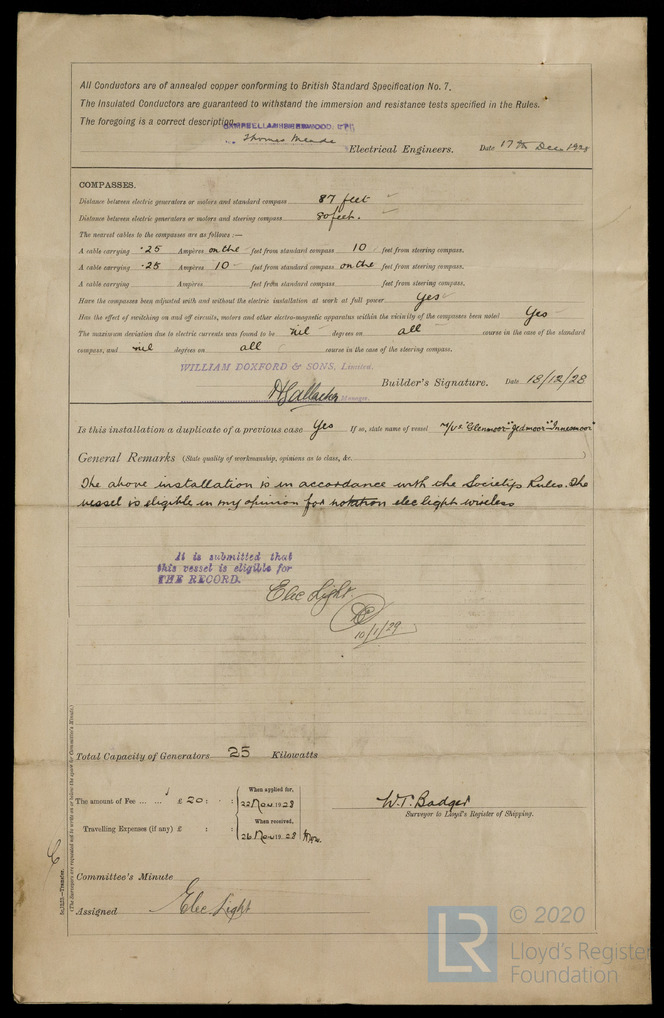 All Conductors are of annealed copper conforming to British Standard Specification No. 7.
The Insulated Conductors are guaranteed to withstand the immersion and resistance tests specified in the Rules.
The foregoing is a correct description.
CAMPBELL & ISHERWOOD, LTD
Thomas Meade
Electrical Engineers. Date 17th Dec 1928
COMPASSES.
Distance between electric generators or motors and standard compass 87 feet
Distance between electric generators or motors and steering compass 80 feet.
The nearest cables to the compasses are as follows :—
A cable carrying ·25 Ampères on the feet from standard compass 10 feet from steering compass.
A cable carrying ·25 Ampères 10 feet from standard compass on the feet from steering compass.
A cable carrying Ampères feet from standard compass feet from steering compass.
Have the compasses been adjusted with and without the electric installation at work at full power Yes
Has the effect of switching on and off circuits, motors and other electro-magnetic apparatus within the vicinity of the compasses been noted Yes
The maximum deviation due to electric currents was found to be nil degrees on all course in the case of the standard
compass, and nil degrees on all course in the case of the steering compass.
WILLIAM DOXFORD & SONS, Limited.
Manager. Builder's Signature. Date 18/12/28
Is this installation a duplicate of a previous case Yes If so, state name of vessel M/Vs "Glenmoor" "Jedmoor" "Innesmoor"
General Remarks (State quality of workmanship, opinions as to class, &c.
The above installation is in accordance with the Societys Rules. The
vessel is eligible in my opinion for notation elec light wireless
It is submitted that
this vessel is eligible for
THE RECORD.
Elec Light.
10/1/29
Total Capacity of Generators 25 Kilowatts
The amount of Fee ... ... £ 20 : :
When applied for,
22 Nov 1928
Travelling Expenses (if any) £ : :
When received,
26 Nov 1928
W.T. Badger
Surveyor to Lloyd's Register of Shipping.
Committee's Minute
Assigned Elec Light
(The Surveyors are requested not to write on or below the space for Committee's Minute.)
© 2020
LR
Lloyd's Register
Foundation